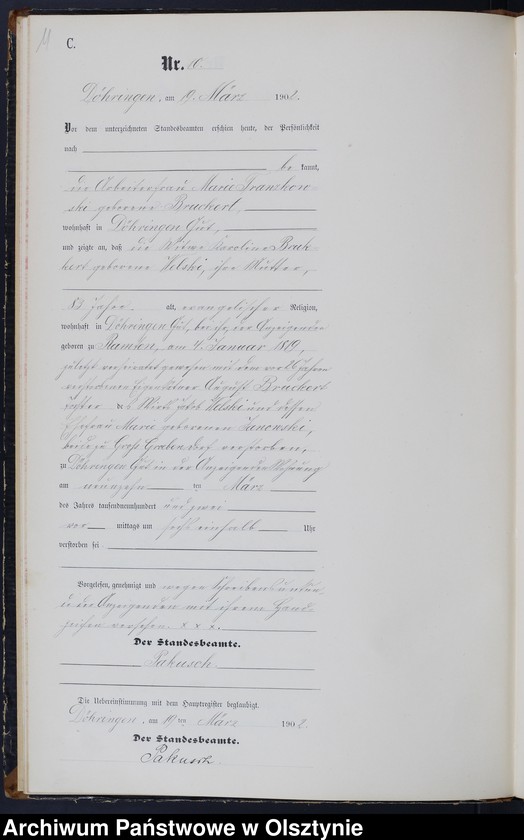 C.
Nr. 10.
Döhringen, am 19. März 1902.
Vor dem unterzeichneten Standesbeamten erschien heute, der Persönlichkeit
nach
be kannt,
die Arbeiterfrau Marie Franzkow-
ski geborene Bruckert,
wohnhaft in Döhringen Gut,
und zeigte an, daß die Witwe Karoline Bruk-
kert geborene Welski, ihre Mutter,
83 Jahre alt, evangelischer Religion,
wohnhaft in Döhringen Gut, bei ihr der Anzeigenden
geboren zu Ramten, am 4. Januar 1819,
zuletzt verheiratet gewesen mit dem vor Jahren
verstorbenen Eigenkätner August Bruckert
Tochter des Wirth Jakob Welski und dessen
Ehefrau Marie geborenen Janowski,
beide zu Groß verstorben,
zu Döhringen Gut in der Anzeigenden Wohnung
am neunzehnten März
des Jahres tausendneunhundert und zwei
vor mittags um sechs einhalb Uhr
verstorben sei
Vorgelesen, genehmigt und wegen Schreibensunkun-
de der Anzeigenden mit ihrem Hand-
zeichen versehen. x x x.
Der Standesbeamte.
Pakusch
Die Uebereinstimmung mit dem Hauptregister beglaubigt.
Döhringen, am 19ten März 1902.
Der Standesbeamte.
Pakusch
Archiwum Państwowe w Olsztynie